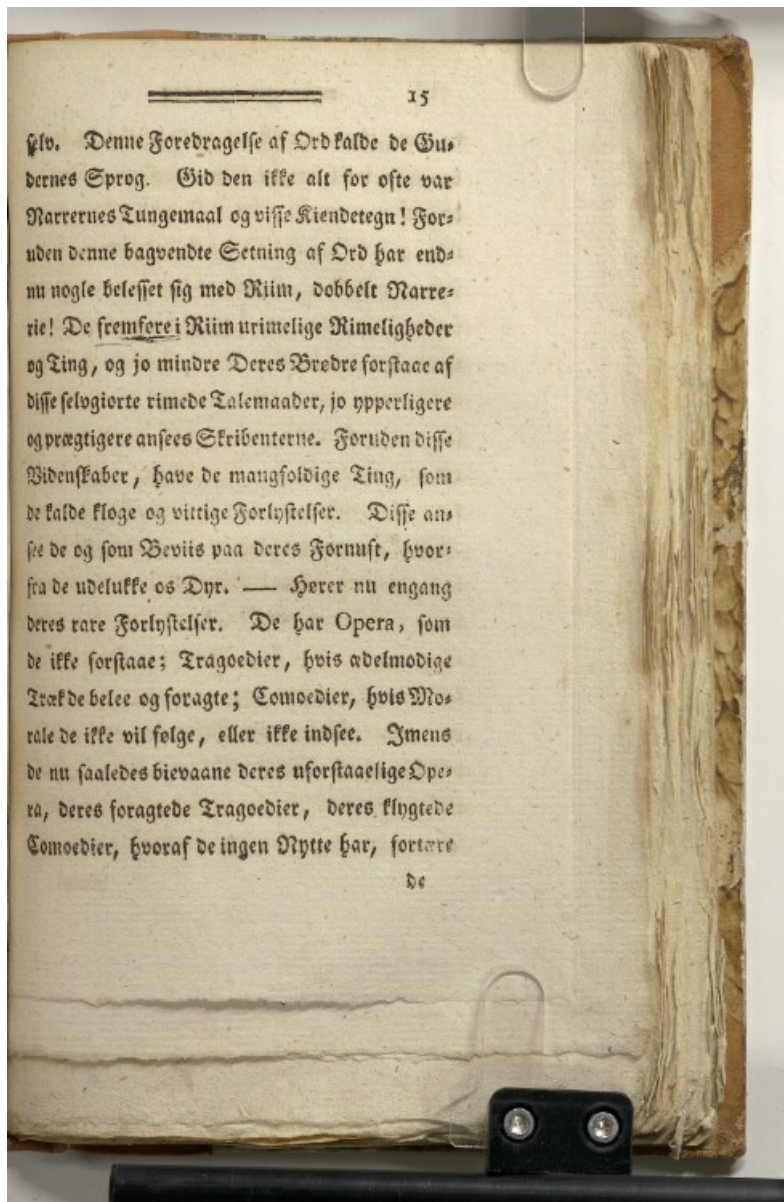 15
selv. Denne Foredragelse af Ord kalde de Gu-
dernes Sprog. Gid den ikke alt for ofte var
Narrernes Tungemaal og visse Kiendetegn! For-
uden denne bagvendte Setning af Ord har end-
nu nogle belesset sig med Riim, dobbelt Narre-
rie! De fremføre i Riim urimelige Rimeligheder
og Ting, og jo mindre Deres Brødre forstaae af
disse selvgiorte rimede Talemaader, jo ypperligere
og prægtigere ansees Skribenterne. Foruden disse
Videnskaber, have de mangfoldige Ting, som
de kalde kloge og vittige Forlystelser. Disse an-
see de og som Beviis paa deres Fornuft, hvor-
fra de udelukke os Dyr. — Hører nu engang
deres rare Forlystelser. De har Opera, som
de ikke forstaae; Tragoedier, hvis ædelmodige
Træk de belee og foragte; Comoedier, hvis Mo-
rale de ikke vil følge, eller ikke indsee. Imens
de nu saaledes bievaane deres uforstaaelige Ope-
ra, deres foragtede Tragoedier, deres klygtede
Comoedier, hvoraf de ingen Nytte har, fortære
de